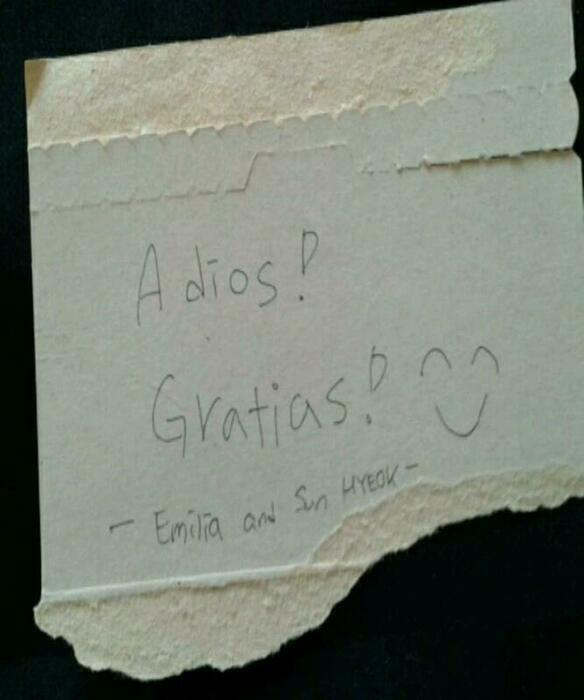 Adios!
Gratias!
- Emilia and Sun HYEOK -